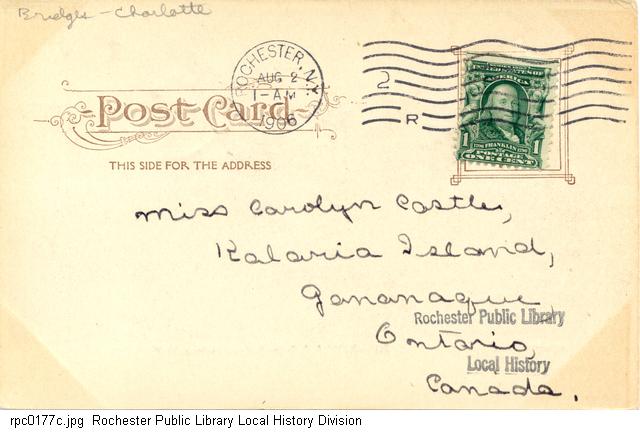 Bridges - Charlotte
ROCHESTER, N.Y.
AUG 2
1-AM
1906
2
R
UNITED STATES OF
AMERICA
1706 FRANKLIN 1790
1 POSTAGE 1
ONE CENT
POST CARD
THIS SIDE FOR THE ADDRESS
Miss Carolyn Castle,
Kalaria Island,
Gananaque
Ontario,
Canada.
Rochester Public Library
Local History
rpc0177c.jpg Rochester Public Library Local History Division